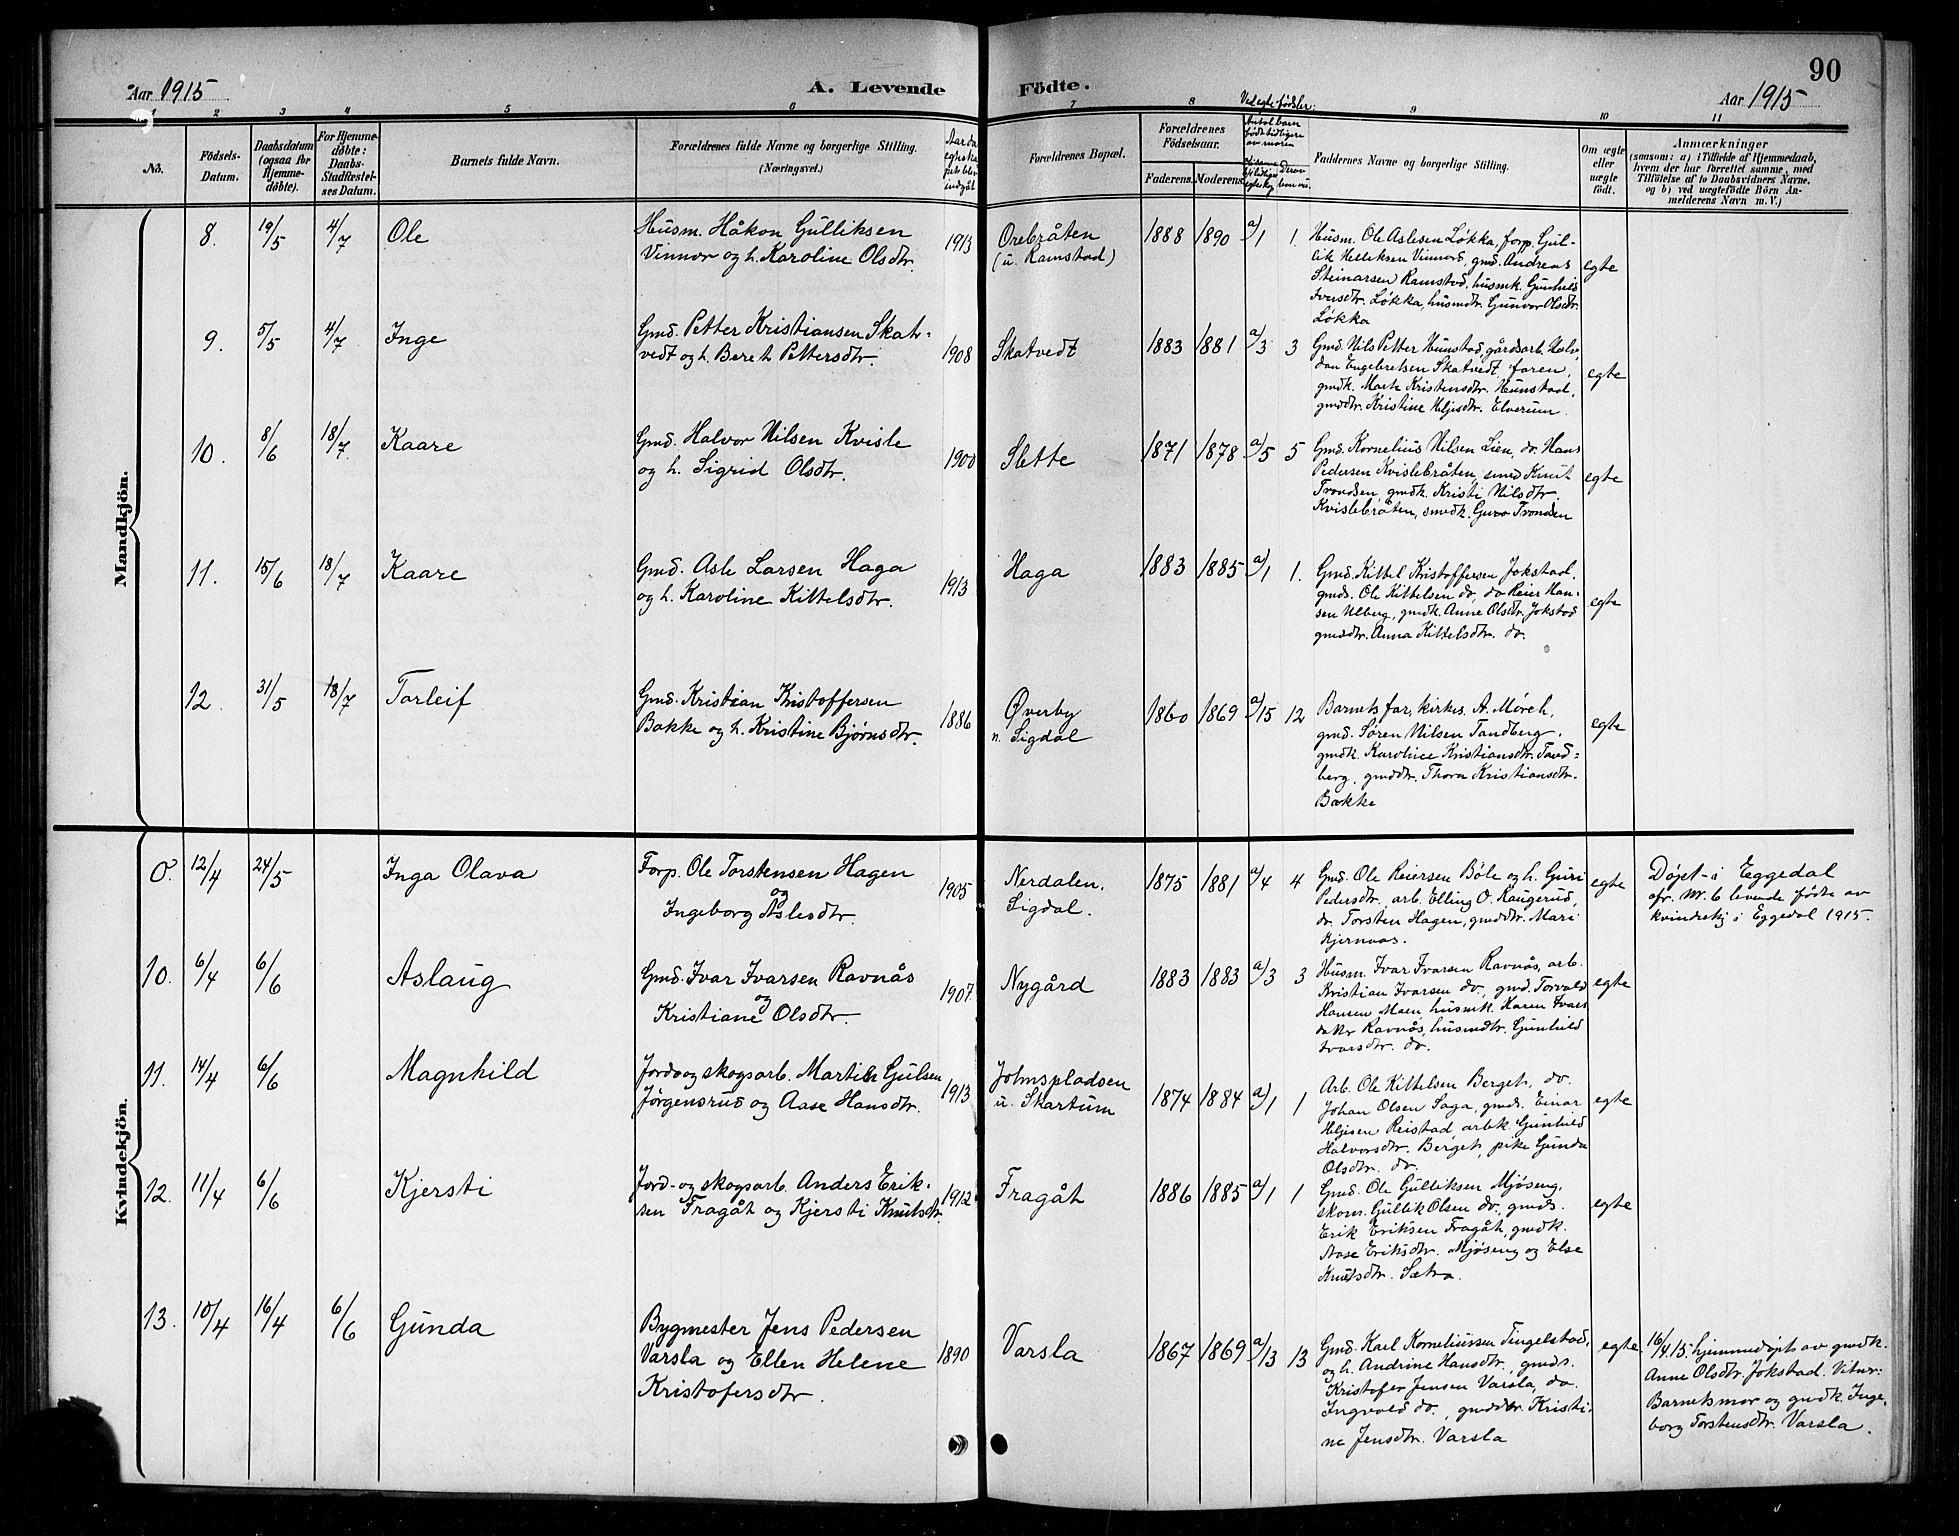 Aar 1915
A. Levende
Födte.
90
Aar 1915
1 2 3 4 5 6 7 8 9 10 11
No.
Födsels-
Datum.
Daabsdatum
(ogsaa for
Hjemme-
döbte).
For Hjemme-
döbte:
Daabs-
Stadfæstel-
ses Datum.
Barnets fulde Navn.
Forældrenes fulde Navne og borgerlige Stilling.
(Næringsvei.)
Forældrenes Bopæl.
Forældrenes
Födselsaar.
Faderens. Moderens.
Ved egte fødsler:
Antal barn
født tidligere
av moren
Faddernes Navne og borgerlige Stilling.
Om ægte
eller
uægte
födt.
Anmærkninger
(saasom: a) i Tilfælde af Hjemmedaab,
hvem der har forrettet samme, med
Tilföielse af to Daabsvidners Navne,
og b) ved uægtefödte Börn An-
melderens Navn m. V.)
Mandkjön.
8. 19/5 4/7 Ole
Husm. Håkon Gulliksen
Vinnor og h. Karoline Olsdtr.
1913
Orebråten
(u. Ramstad)
1888 1890 a/1 1.
Husm. Ole Aslesen Løkka, forp. Gul-
lik Helliksen Vinnord, gmd. Andreas
Steinarsen Ramstad, husmk. Gunhild
Iversdtr. Løkka, husmdtr. Gunvor Olsdtr.
Løkka
egte
9. 5/5 4/7 Inge
Gmd. Petter Kristiansen Skat-
vedt og h. Beret Pettersdtr.
1908
Skatvedt
1883 1881 a/3 3
Gmd. Nils Petter Hunstad, gårdsarb. Halv-
dan Engebretsen Skatvedt, faren,
gmdk. Marte Kristensdtr. Hunstad,
gmddtr. Kristine Heljesdtr. Elverum.
egte
10. 8/6 18/7 Kaare
Gmd. Halvor Nilsen Kvisle
og h. Sigrid Olsdtr.
1900
Slette
1871 1878 a/5 5
Gmd. Kornelius Nilsen Lien, do. Hans
Pedersen Kvislebråten, smed Knut
Trondsen, gmdk. Kristi Nilsdtr.
Kvislebråten, smedk. Guro Trondsen
egte
11. 15/6 18/7 Kaare
Gmd. Asle Larsen Haga
og h. Karoline Kittelsdtr.
1913
Haga
1883 1885 a/1 1.
Gmd. Kittel Kristoffersen Jokstad,
gmds. Ole Kittelsen do, do Reier Han-
sen Ulberg, gmdk. Anne Olsdtr. Jokstad
gmddtr. Anna Kittelsdtr. do.
egte
12. 31/5 18/7 Torleif
Gmd. Kristian Kristoffersen
Bakke og h. Kristine Bjørnsdtr.
1886
Øverby
n. Sigdal
1860 1869 a/15 12
Barnets far, kirkes. A. Mörch,
gmd. Søren Nilsen Tandberg,
gmdk. Karoline Kristiansdtr. Tand-
berg, gmddtr. Thora Kristiansdtr.
Bakke
egte
Kvindekjön.
0. 12/4 24/5 Inga Olava
Forp. Ole Torstensen Hagen
og
Ingeborg Aslesdtr.
1905
Nerdalen,
Sigdal.
1875 1881 a/4 4
Gmd. Ole Reiersen Böle og h. Guri
Pedersdtr, arb. Elling O. Kaugerud,
do. Torsten Hagen, gmddtr. Mari
Kjernaas.
egte
Døpt i Eggedal
cfr. Nr. 6 levende fødte av
kvindekj. i Eggedal 1915.
10. 6/4 6/6 Aslaug
Gmd. Ivar Ivarsen Ravnås
og
Kristiane Olsdtr.
1907
Nygård
1883 1883 a/3 3
Husm. Ivar Ivarsen Ravnås, arb.
Kristian Ivarsen do., gmd. Torvald
Hansen Moen, husmk. Karen Ivars
datter Ravnås, husmdtr. Gunhild
Ivarsdtr. do.
egte
11. 14/4 6/6 Magnhild
Jord og skogsarb. Martin Gulsen
Jørgensrud og Aase Hansdtr.
1913
Johnspladsen
u. Skartum
1874 1884 a/1 1
Arb. Ole Kittelsen Berget, do.
Johan Olsen Saga, gmds. Einar
Heljesen Reistad arbk. Gunhild
Halvorsdtr. Berget, pike Gunda
Olsdtr. do.
egte
12. 11/4 6/6 Kjersti
Jord- og skogsarb. Anders Erik-
sen Fragåt og Kjersti Knutsdtr.
1912
Fragåt
1886 1885 a/1 1
Gmd. Ole Gulliksen Mjøseng,
skom. Gullik Olsen do., gmds.
Erik Eriksen Fragåt, gmdk.
Aase Eriksdtr. Mjøseng og Else
Knutsdtr. Sætra.
egte
13. 10/4 16/4 6/6 Gunda
Bygmester Jens Pedersen
Varsla og Ellen Helene
Kristofersdtr.
1890
Varsla
1867 1869 a/13 13
Gmd. Karl Korneliussen Tingelstad,
og h. Andrine Hansdtr., gmds.
Kristofer Jensen Varsla, do.
Ingvald do., gmddtr. Kristi-
ne Jensdtr. Varsla
egte
16/4 15. hjemmedøpt av gmdk.
Anne Olsdtr. Jokstad. Vitner:
Barnets mor og gmdk. Inge-
borg Torstensdtr. Varsla.